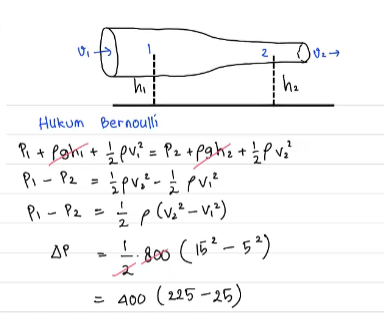 v₁ → 1 2 v₂ →
h₁ h₂
Hukum Bernoulli
P₁ + ρgh₁ + ½ρv₁² = P₂ + ρgh₂ + ½ρv₂²
P₁ - P₂ = ½ρv₂² - ½ρv₁²
P₁ - P₂ = ½ρ(v₂² - v₁²)
ΔP = ½ · 800 (15² - 5²)
= 400 (225 - 25)